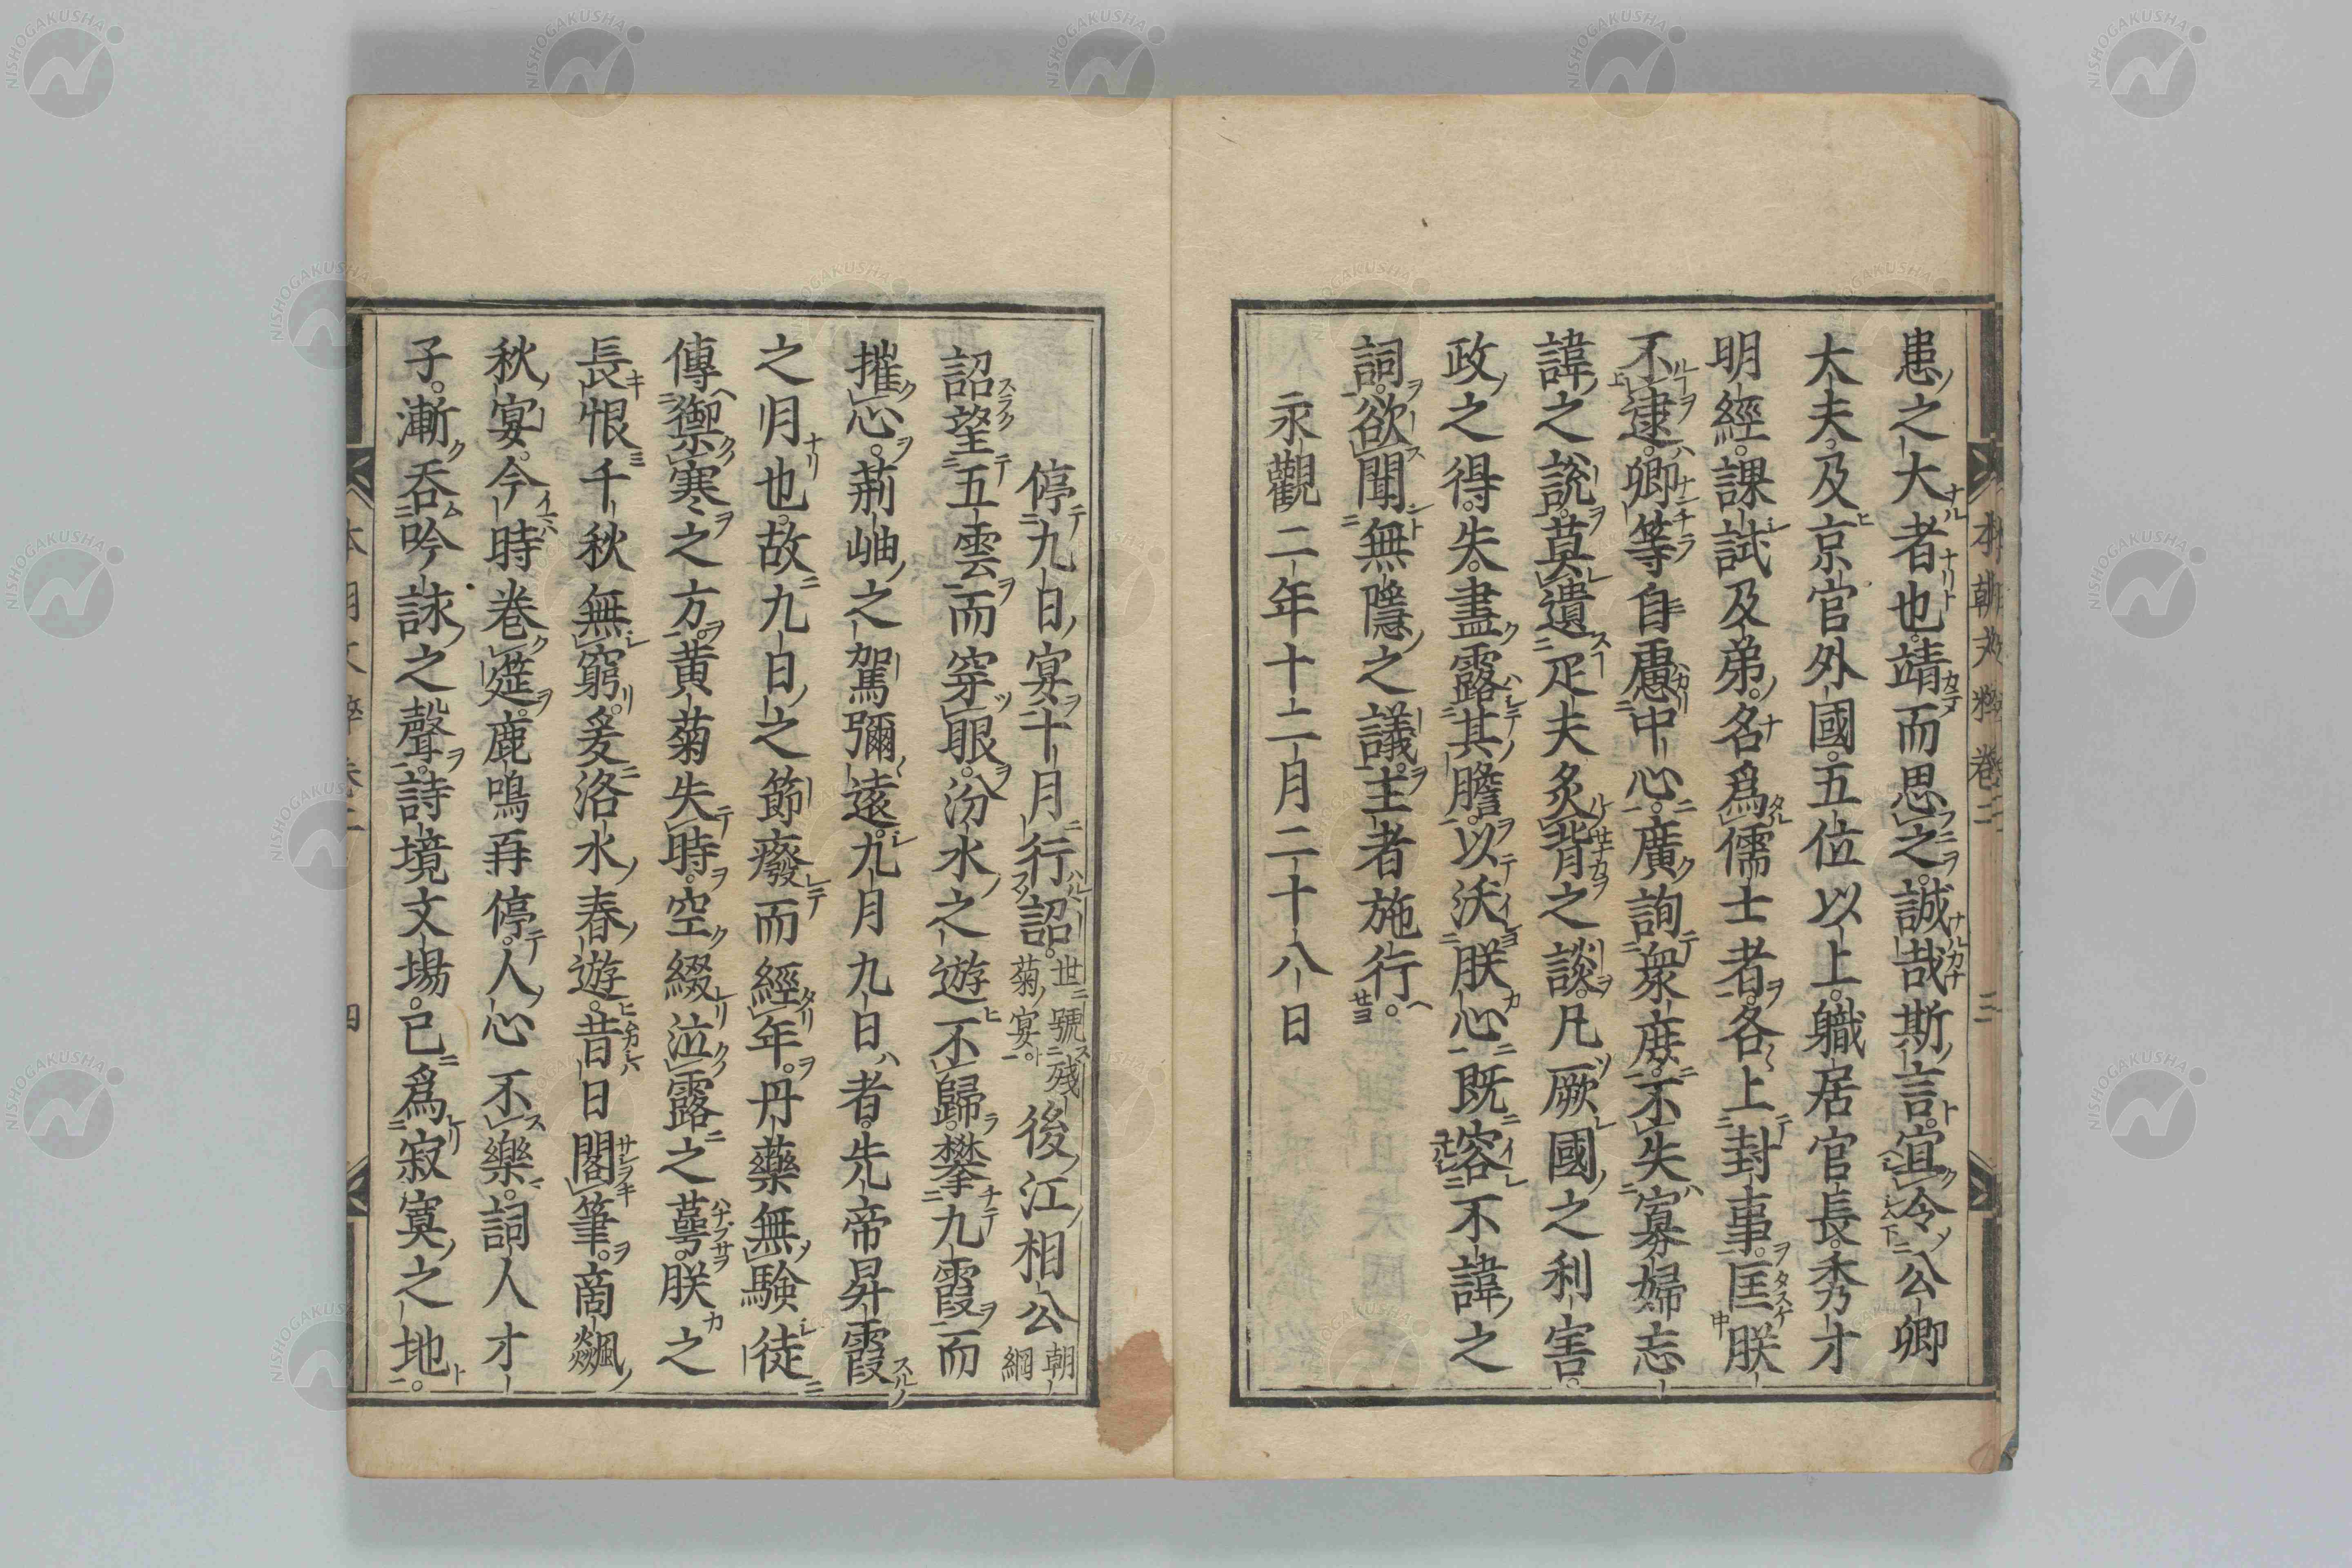 患之大者也。靖而思之。誠哉斯言。宜令公卿
太夫。及京官外國。五位以上。職居官長。秀才
明經。課試及弟。名爲儒士者。各上封事。匡朕
不逮。卿等自慮中心。廣詢衆庶。不失寡婦忘
諱之說。莫遺疋夫炙背之談。凡厥國之利害。
政之得失。盡露其膽。以沃朕心。既容不諱之
詞。欲聞無隱之議。主者施行。
永觀二年十二月二十八日
本朝文粹卷二
三
停九日宴十月行詔。世號殘菊宴。後江相公朝綱
詔望五雲而穿眼。汾水之遊不歸。攀九霞而
摧心。荊岫之駕彌遠。九月九日者。先帝昇霞
之月也。故九日之節廢而經年。丹藥無驗徒
傳禦寒之方。黃菊失時。空綴泣露之蕚。朕之
長恨千秋無窮。爰洛水春遊。昔日閣筆。商飈
秋宴。今時卷筵。鹿鳴再停。人心不樂。詞人才
子。漸吞吟詠之聲。詩境文場。已爲寂寞之地。
四
NISHOGAKUSHA